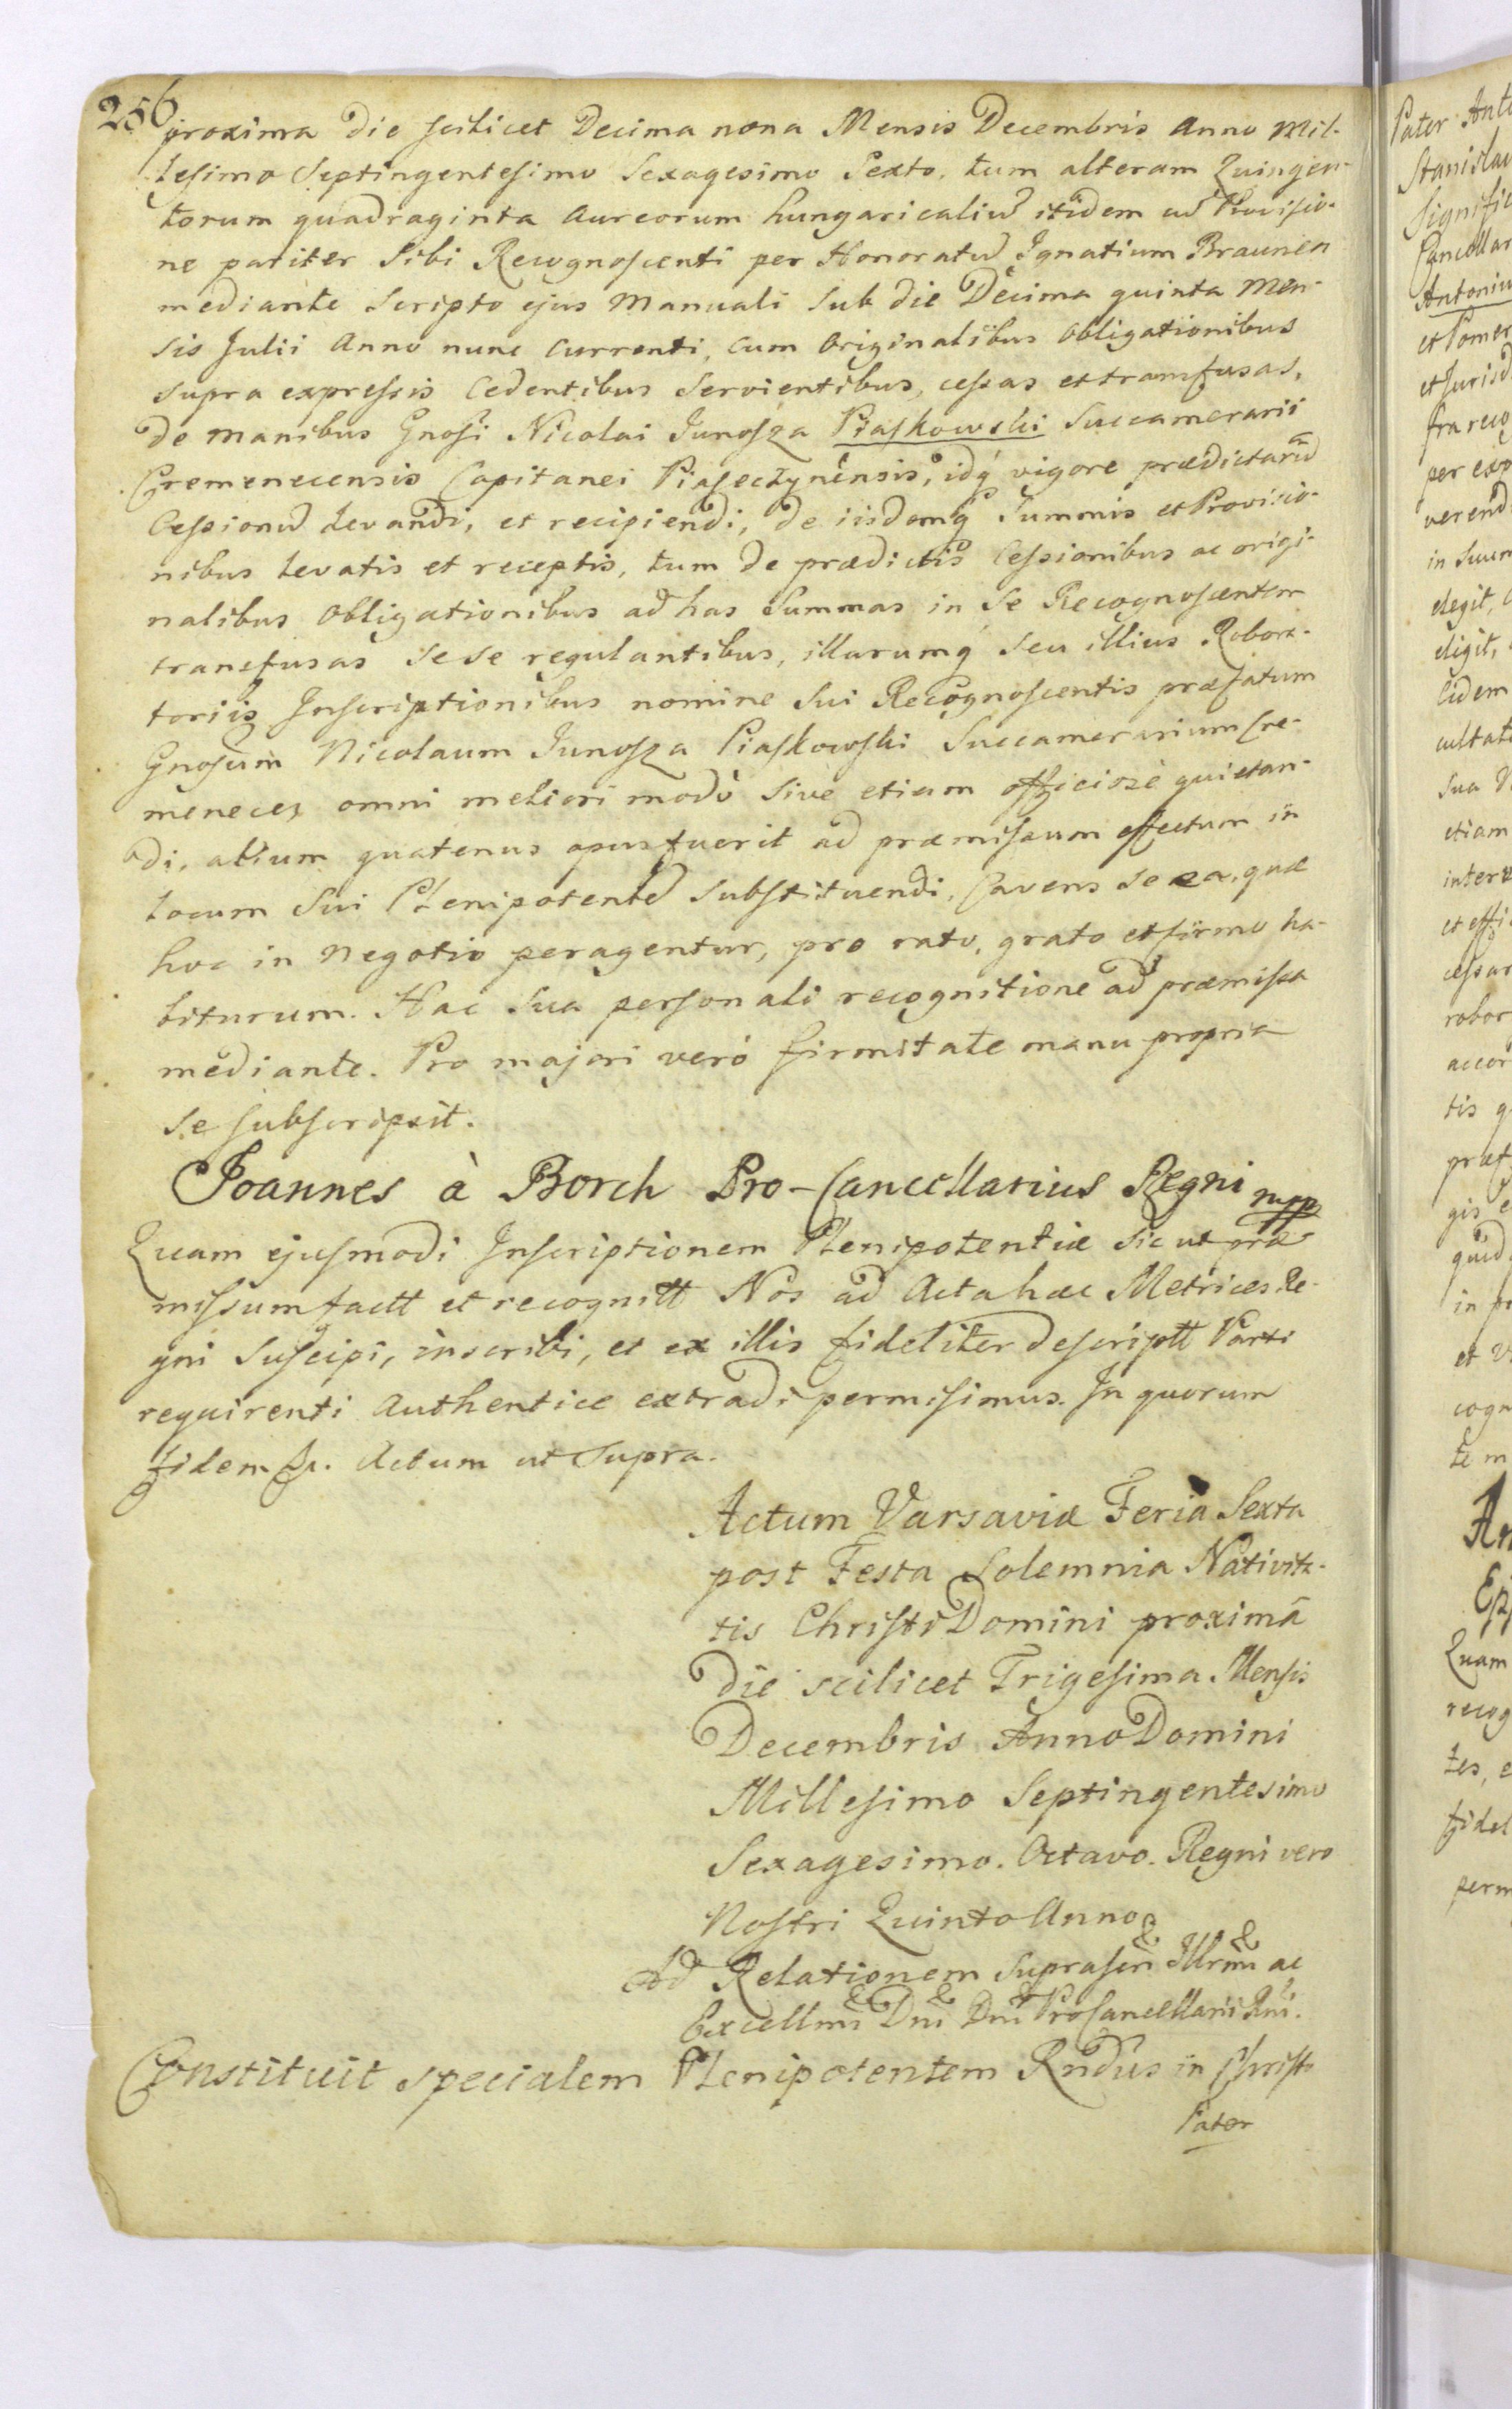 256
proxima die scilicet Decima nona Mensis Decembris Anno Mil-
lesimo Septingentesimo Sexagesimo Sexto, tum alteram Quingen-
torum quadraginta Aureorum hungaricaliu itidem cu Provisio-
ne pariter Sibi Recognoscenti per Honoratu Ignatium Braunen
mediante Scripto ejus Manuali Sub die Decima quinta Men-
sis Julii Anno nunc Currenti, cum Originalibus Obligationibus
supra expressis Cedentibus Servientibus, cessas et transfusas,
de manibus Gnosi Nicolai Junosza Piaskowski Succamerarii
Cremenecensis Capitanei Piaseczynensis, idq vigore prædictarū
Cessionu levandi, et recipiendi, de iisdemq Summis et Provisio-
nibus levatis et receptis, tum de prædictis Cessionibus ac origi-
nalibus Obligationibus ad has Summas in Se Recognoscentem
transfusas sese regulantibus, illarumq seu illius Robora-
toriis Inscriptionibus nomine Sui Recognoscentis præfatum
Gnosum Nicolaum Junosza Piaskowski Succamerarium Cre-
meneces omni meliori modo Sive etiam officiose quietan-
di, alium quatenus opus fuerit ad præmissum effectum in
locum Sui Plenipotente Substituendi, Cavens se ea, quæ
hoc in Negotio peragentur, pro rato, grato et firmo ha-
biturum. Hac Sua personali recognitione ad præmissa
mediante. Pro majori verò firmitate manu propria
se subscripsit.
Joannes à Borch Pro-Cancellarius Regni mpp
Quam ejusmodi Inscriptionem Plenipotentiæ sicut præ
missum factt et recognitt Nos ad Acta hæc Metrices Re-
gni Suscipi, inscribi, et ex illis fideliter descriptt Parti
requirenti Authentice extradi permisimus. In quorum
fidem &. Actum ut Supra.
Actum Varsaviæ Feria Sexta
post Festa Solemnia Nativita-
tis Christi Domini proximâ
die scilicet Trigesima Mensis
Decembris Anno Domini
Millesimo Septingentesimo
Sexagesimo. Octavo. Regni vero
Nostri Quinto Anno
Ad Relationem suprascri Illrmi ac
Excellmi Dni Dni ProCancellarii Rni.
Constituit specialem Plenipotentem Rndus in Christo
Pater